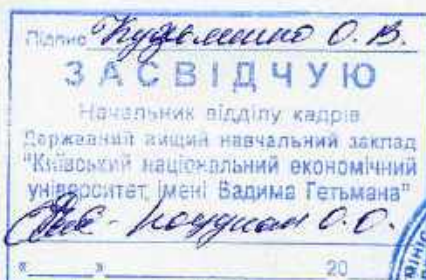 Підпис Кузьменко О. В.
ЗАСВІДЧУЮ
Начальник відділу кадрів
Державний вищий навчальний заклад
"Київський національний економічний
університет імені Вадима Гетьмана"
О.О.
«____»____________ 20
МІНІС